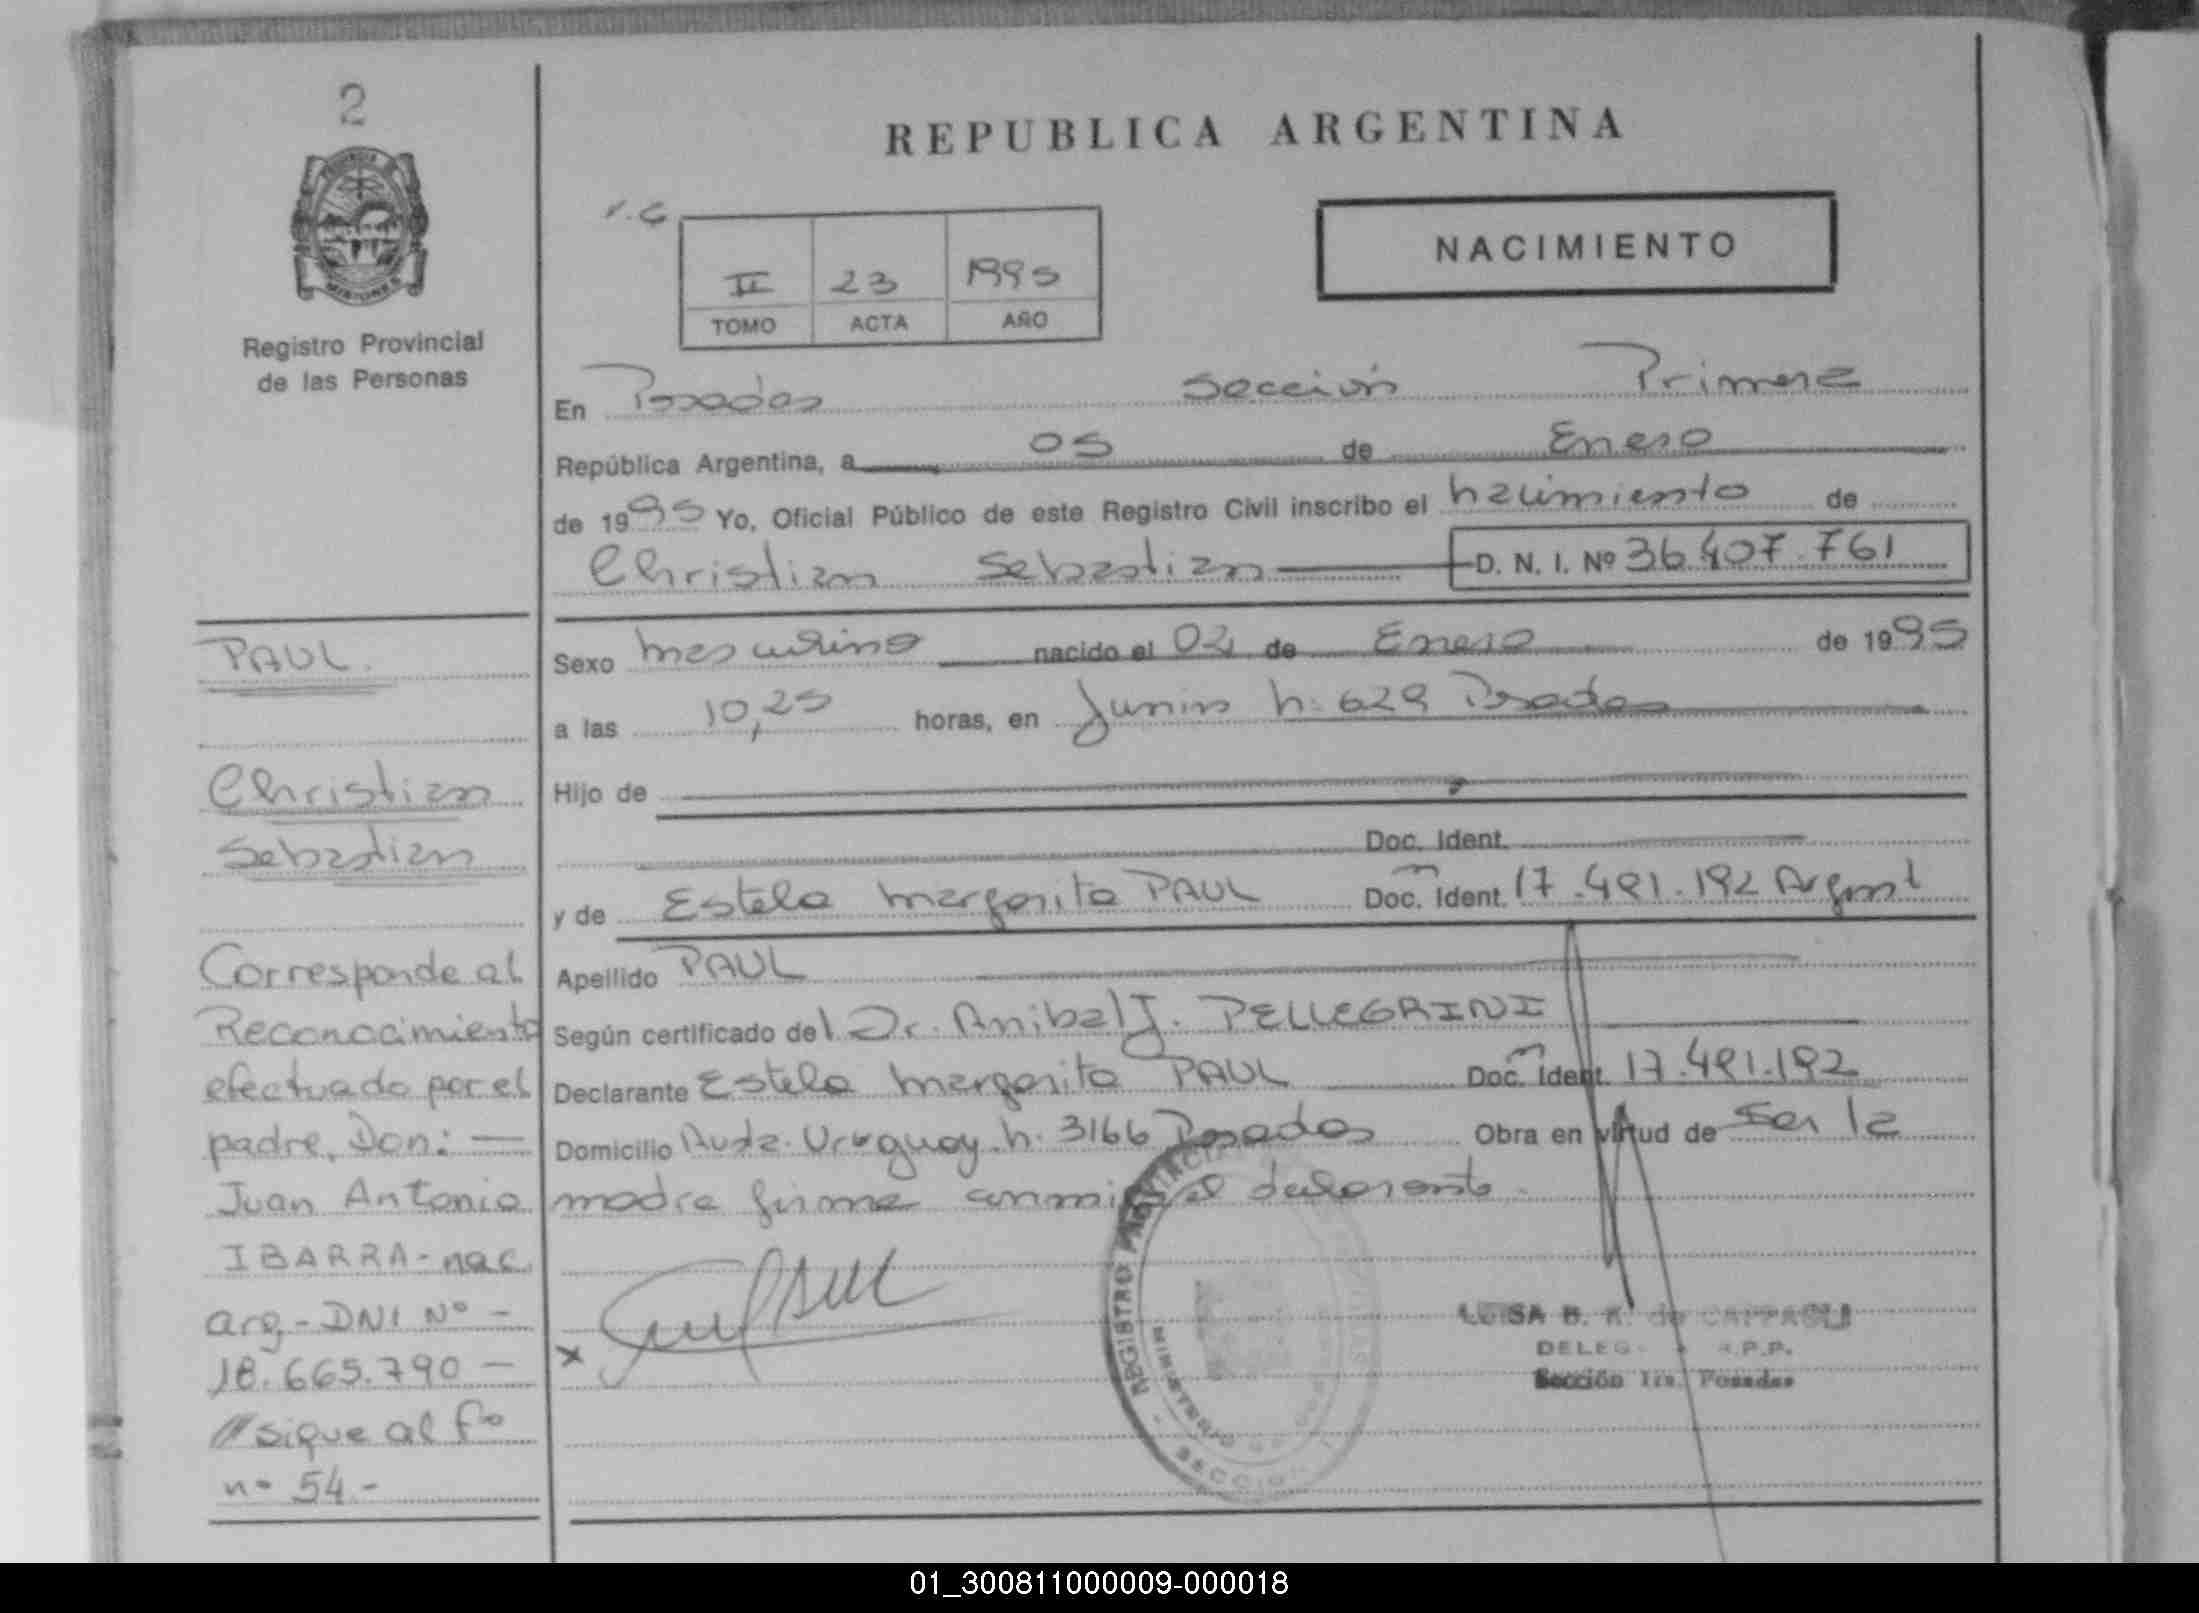 2
REPUBLICA ARGENTINA
NACIMIENTO
II 23 1995
TOMO ACTA AÑO
MISIONES
Registro Provincial
de las Personas
En Posadas Sección Primera
República Argentina, a 05 de Enero
de 1995 Yo, Oficial Público de este Registro Civil inscribo el nacimiento de
Christian Sebastian D. N. I. Nº 36.407.761
Sexo masculino nacido el 04 de Enero de 1995
a las 10,25 horas, en Junin n: 629 Posadas
Hijo de
Doc. Ident.
y de Estela Margarita PAUL Doc. Ident. 17.491.192 Argent
Apellido PAUL
Según certificado del Dr. Anibal J. PELLEGRINI
Declarante Estela Margarita PAUL Doc. Ident. 17.491.192
Domicilio Avda. Uruguay n: 3166 Posadas Obra en virtud de Ser la
madre firma conmigo el declarante.
PAUL.
Christian
Sebastian
Corresponde al
Reconocimiento
efectuado por el
padre, Don: —
Juan Antonio
IBARRA - nac.
arg - DNI Nº -
18.665.790 —
// sigue al fº
nº 54.-
x
REGISTRO
MINISTERIO
SECCION
LUISA B.
DELEG. R.P.P.
Sección 1ra. Posadas
01_300811000009-000018